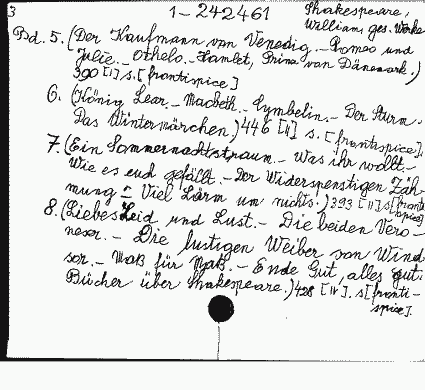 3
1-242461
Shakespeare,
William, ges. Werke
Bd. 5. (Der Kaufmann von Venedig. - Romeo und
Julie. - Othelo. - Hamlet, Prinz von Dänemark.)
390 [1] s. [frontispice]
6. (König Lear. - Macbeth. - Cymbelin. - Der Sturm. -
Das Wintermärchen.) 446 [II] s. [frontispice].
7. (Ein Sommernachtstraum. - Was ihr wollt. -
Wie es euch gefällt. - Der Widerspenstigen Zäh-
mung. - Viel Lärm um nichts.) 393 [II] s [fronti-
spice].
8. (Liebes Leid und Lust. - Die beiden Vero-
neser. - Die lustigen Weiber von Wind
sor. - Maß für Maß. - Ende Gut, alles gut.
Bücher über Shakespeare.) 428 [IV]. s [fronti-
spice].